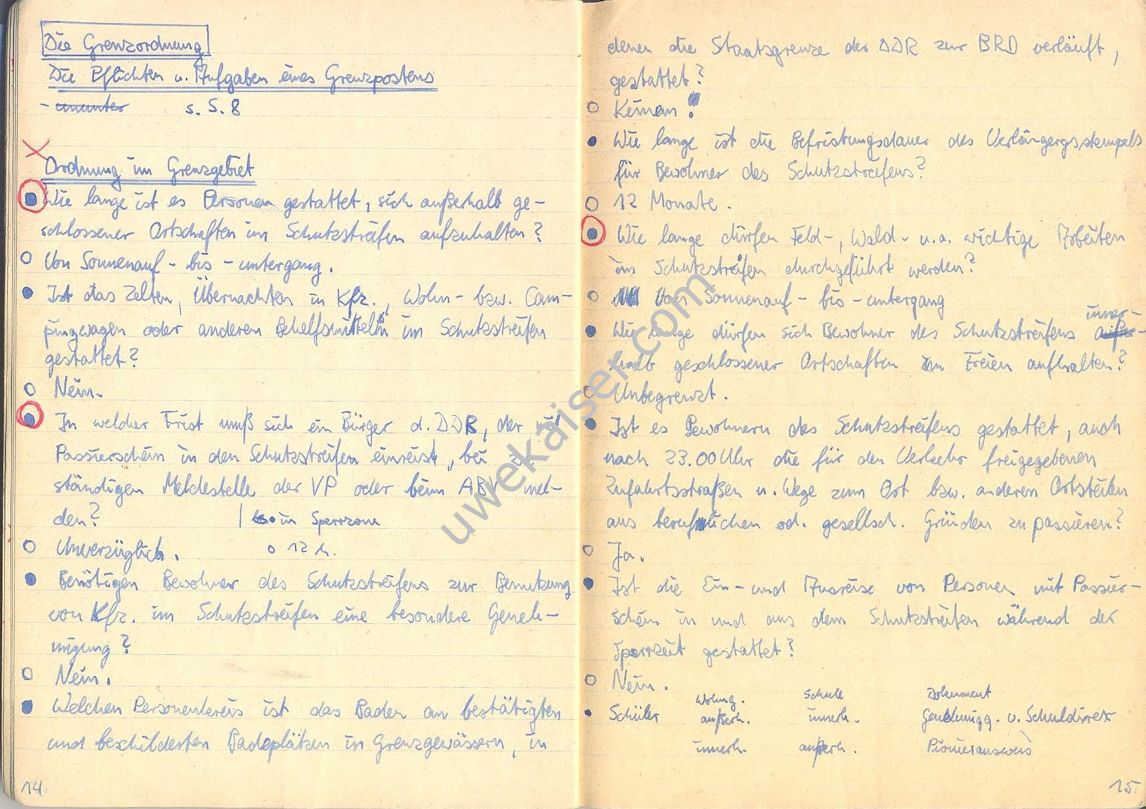 Die Grenzordnung
Die Pflichten u. Aufgaben eines Grenzpostens
- s. S. 8
Ordnung im Grenzgebiet
Wie lange ist es Personen gestattet, sich außerhalb ge-
schlossener Ortschaften im Schutzstreifen aufzuhalten?
Von Sonnenauf- bis -untergang.
Ist das Zelten, Übernachten in Kfz., Wohn- bzw. Cam-
pingwagen oder anderen Behelfsmitteln im Schutzstreifen
gestattet?
Nein.
In welcher Frist muß sich ein Bürger d. DDR, der mit
Passierschein in den Schutzstreifen einreist, bei
ständigen Meldestelle der VP oder beim ABV mel-
den? in Sperrzone
Unverzüglich. 12 h.
Benötigen Bewohner des Schutzstreifens zur Benutzung
von Kfz. im Schutzstreifen eine besondere Geneh-
migung?
Nein.
Welchen Personenkreis ist das Baden an bestätigten
und beschilderten Badeplätzen in Grenzgewässern, in
14.
denen die Staatsgrenze der DDR zur BRD verläuft,
gestattet?
Keinen!
Wie lange ist die Befristungsdauer des Verlängergsstempels
für Bewohner des Schutzstreifens?
12 Monate.
Wie lange dürfen Feld-, Wald- u. a. wichtige Arbeiten
im Schutzstreifen durchgeführt werden?
Von Sonnenauf- bis -untergang
Wie lange dürfen sich Bewohner des Schutzstreifens inner-
halb geschlossener Ortschaften im Freien aufhalten?
Unbegrenzt.
Ist es Bewohnern des Schutzstreifens gestattet, auch
nach 23.00 Uhr die für den Verkehr freigegebenen
Zufahrtsstraßen u. Wege zum Ort bzw. anderen Ortsteilen
aus beruflichen od. gesellsch. Gründen zu passieren?
Ja.
Ist die Ein- und Ausreise von Personen mit Passier-
schein in und aus dem Schutzstreifen während der
Sperrzeit gestattet?
Nein.
Wohng. Schule Dokument
Schüler außerh. innerh. Genehmigg. v. Schuldirek
innerh. außerh. Pionierausweis
15.
uwekaiser.com